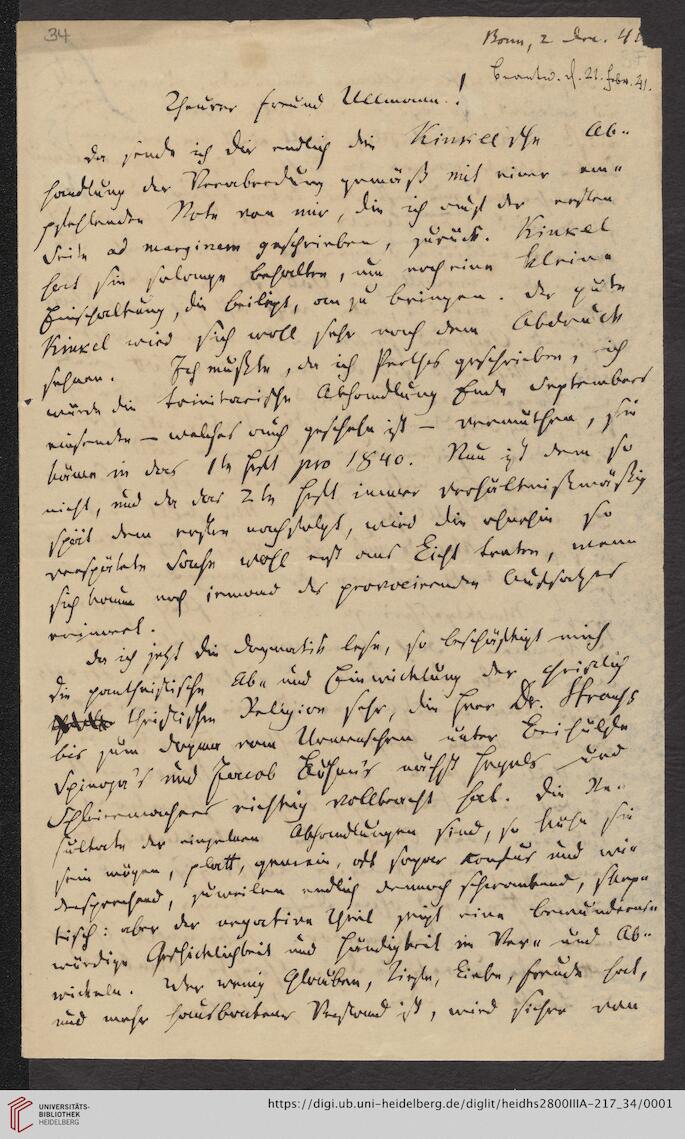 34
Bonn, 2 Dec. 40
Beantw. d. 21. Febr. 41.
Theurer Freund Ullmann!
Da sende ich dir endlich die Kinkelsche Ab-
handlung der Verabredung gemäß mit einer em-
pfehlenden Note von mir, die ich auf der ersten
Seite ad marginem geschrieben, zurück. Kinkel
hat sie solange behalten, um noch eine kleine
Einschaltung, die beiliegt, anzubringen. Der gute
Kinkel wird sich wohl sehr nach dem Abdruck
sehnen. Ich mußte, da ich Perthes geschrieben, ich
würde die trinitarische Abhandlung Ende Septembers
einsenden – welches auch geschehn ist – vermuthen, sie
käme in das 1te Heft pro 1840. Nun ist dem so
nicht, und da das 2te Heft immer verhältnißmäßig
spät dem ersten nachfolgt, wird die ohnehin so
verspätete Sache wohl erst ans Licht treten, wenn
sich kaum noch jemand des provocirenden Aufsatzes
erinnert.
Da ich jetzt die Dogmatik lese, so beschäftigt mich
die pantheistische Ab- und Einwicklung der christlich
christlichen Religion sehr, die Herr Dr. Strauß
bis zum Dogma vom Urmenschen unter Beihülfe
Spinoza's und Jacob Böhme's nächst Hegels und
Schleiermachers richtig vollbracht hat. Die Re-
sultate der einzelnen Abhandlungen sind, so kühn sie
sein mögen, platt, gemein, oft sogar confus und wi-
dersprechend, zuweilen endlich dennoch schwankend, skep-
tisch: aber der negative Theil zeigt eine bewunderns-
würdige Geschicklichkeit und Händigkeit im Ver- und Ab-
wickeln. Wer wenig Glauben, Tiefe, Liebe, Freude hat,
und mehr hausbackenen Verstand ist, wird sicher von
UNIVERSITÄTS-
BIBLIOTHEK
HEIDELBERG
https://digi.ub.uni-heidelberg.de/diglit/heidhs2800IIIA-217_34/0001